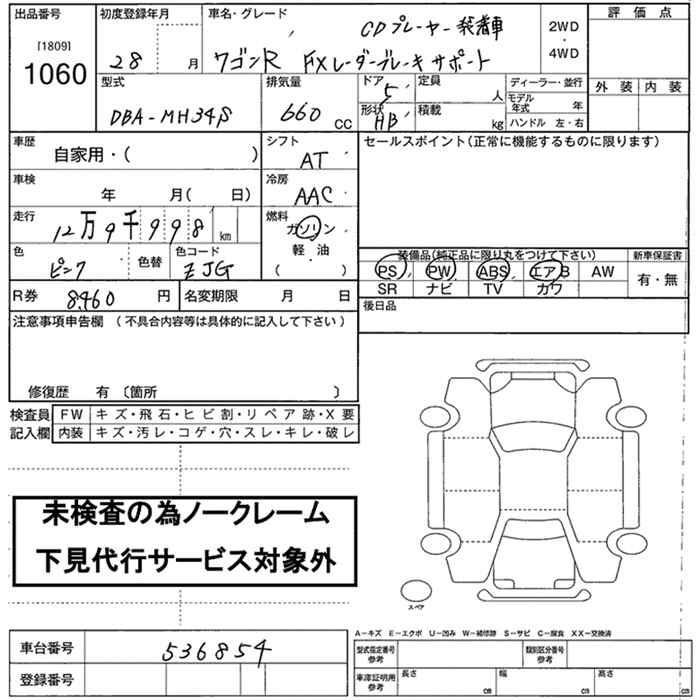 出品番号 初度登録年月 車名・グレード 評価点
[1809] CDプレーヤー装着車 2WD
1060 28 月 ワゴンR FXレーダーブレーキサポート ・ 4WD
型式 排気量 ドア 5 定員 人 ディーラー・並行 外装 内装
DBA-MH34S 660 CC 形状 HB 積載 kg モデル年式 年
ハンドル 左・右
車歴 自家用・( ) シフト AT セールスポイント(正常に機能するものに限ります)
車検 年 月( 日) 冷房 AAC
走行 12万9千998 km 燃料 ガソリン
軽・油
( )
色 ピンク 色替 色コード ZJG 装備品(純正品に限り丸をつけて下さい) 新車保証書
PS PW ABS エアB AW 有・無
R券 8460 円 名変期限 月 日 SR ナビ TV カワ
注意事項申告欄 (不具合内容等は具体的に記入して下さい) 後日品
修復歴 有 〔箇所 〕
検査員 FW キズ・飛石・ヒビ割・リペア跡・X要
記入欄 内装 キズ・汚レ・コゲ・穴・スレ・キレ・破レ
未検査の為ノークレーム
下見代行サービス対象外
スペア
A-キズ E-エクボ U-凹み W-補修跡 S-サビ C-腐食 XX-交換済
車台番号 536854 型式指定番号 参考 類別区分番号 参考
登録番号 車庫証明用 参考 長さ cm 幅 cm 高さ cm